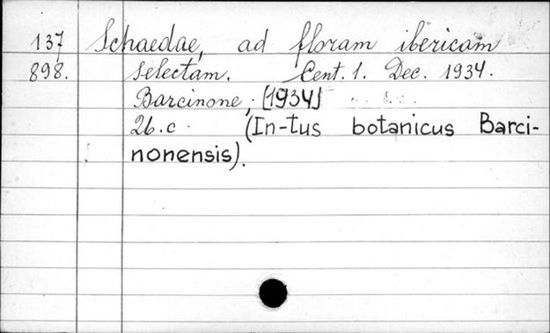 137 Schaedae, ad floram ibericam
898. selectam. Cent. 1. Dec. 1934.
Barcinone, [1934]
26.c. (In-tus botanicus Barci-
nonensis).